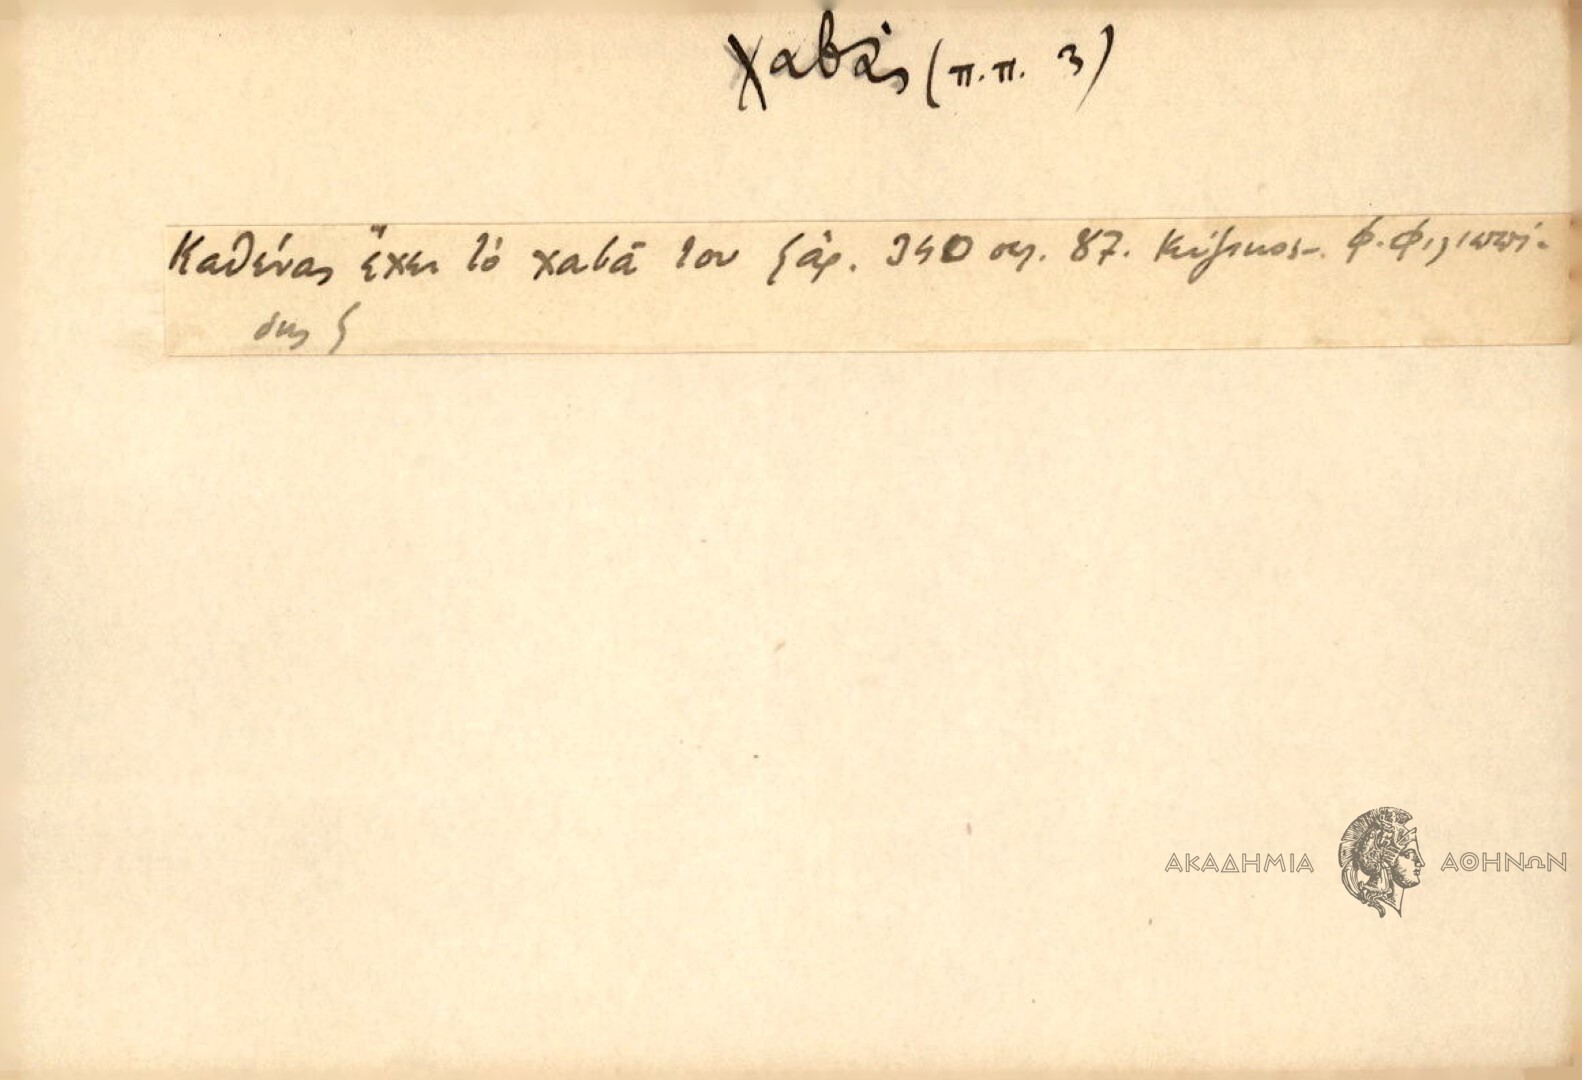 Χαβᾶς (π.π. 3)
Καθένας ἔχει τό χαβᾶ του ζἀρ. 340 σελ. 87. Κύζικος-. Φ. Φιλιππί-
δης ζ
ΑΚΑΔΗΜΙΑ ΑΘΗΝΩΝ